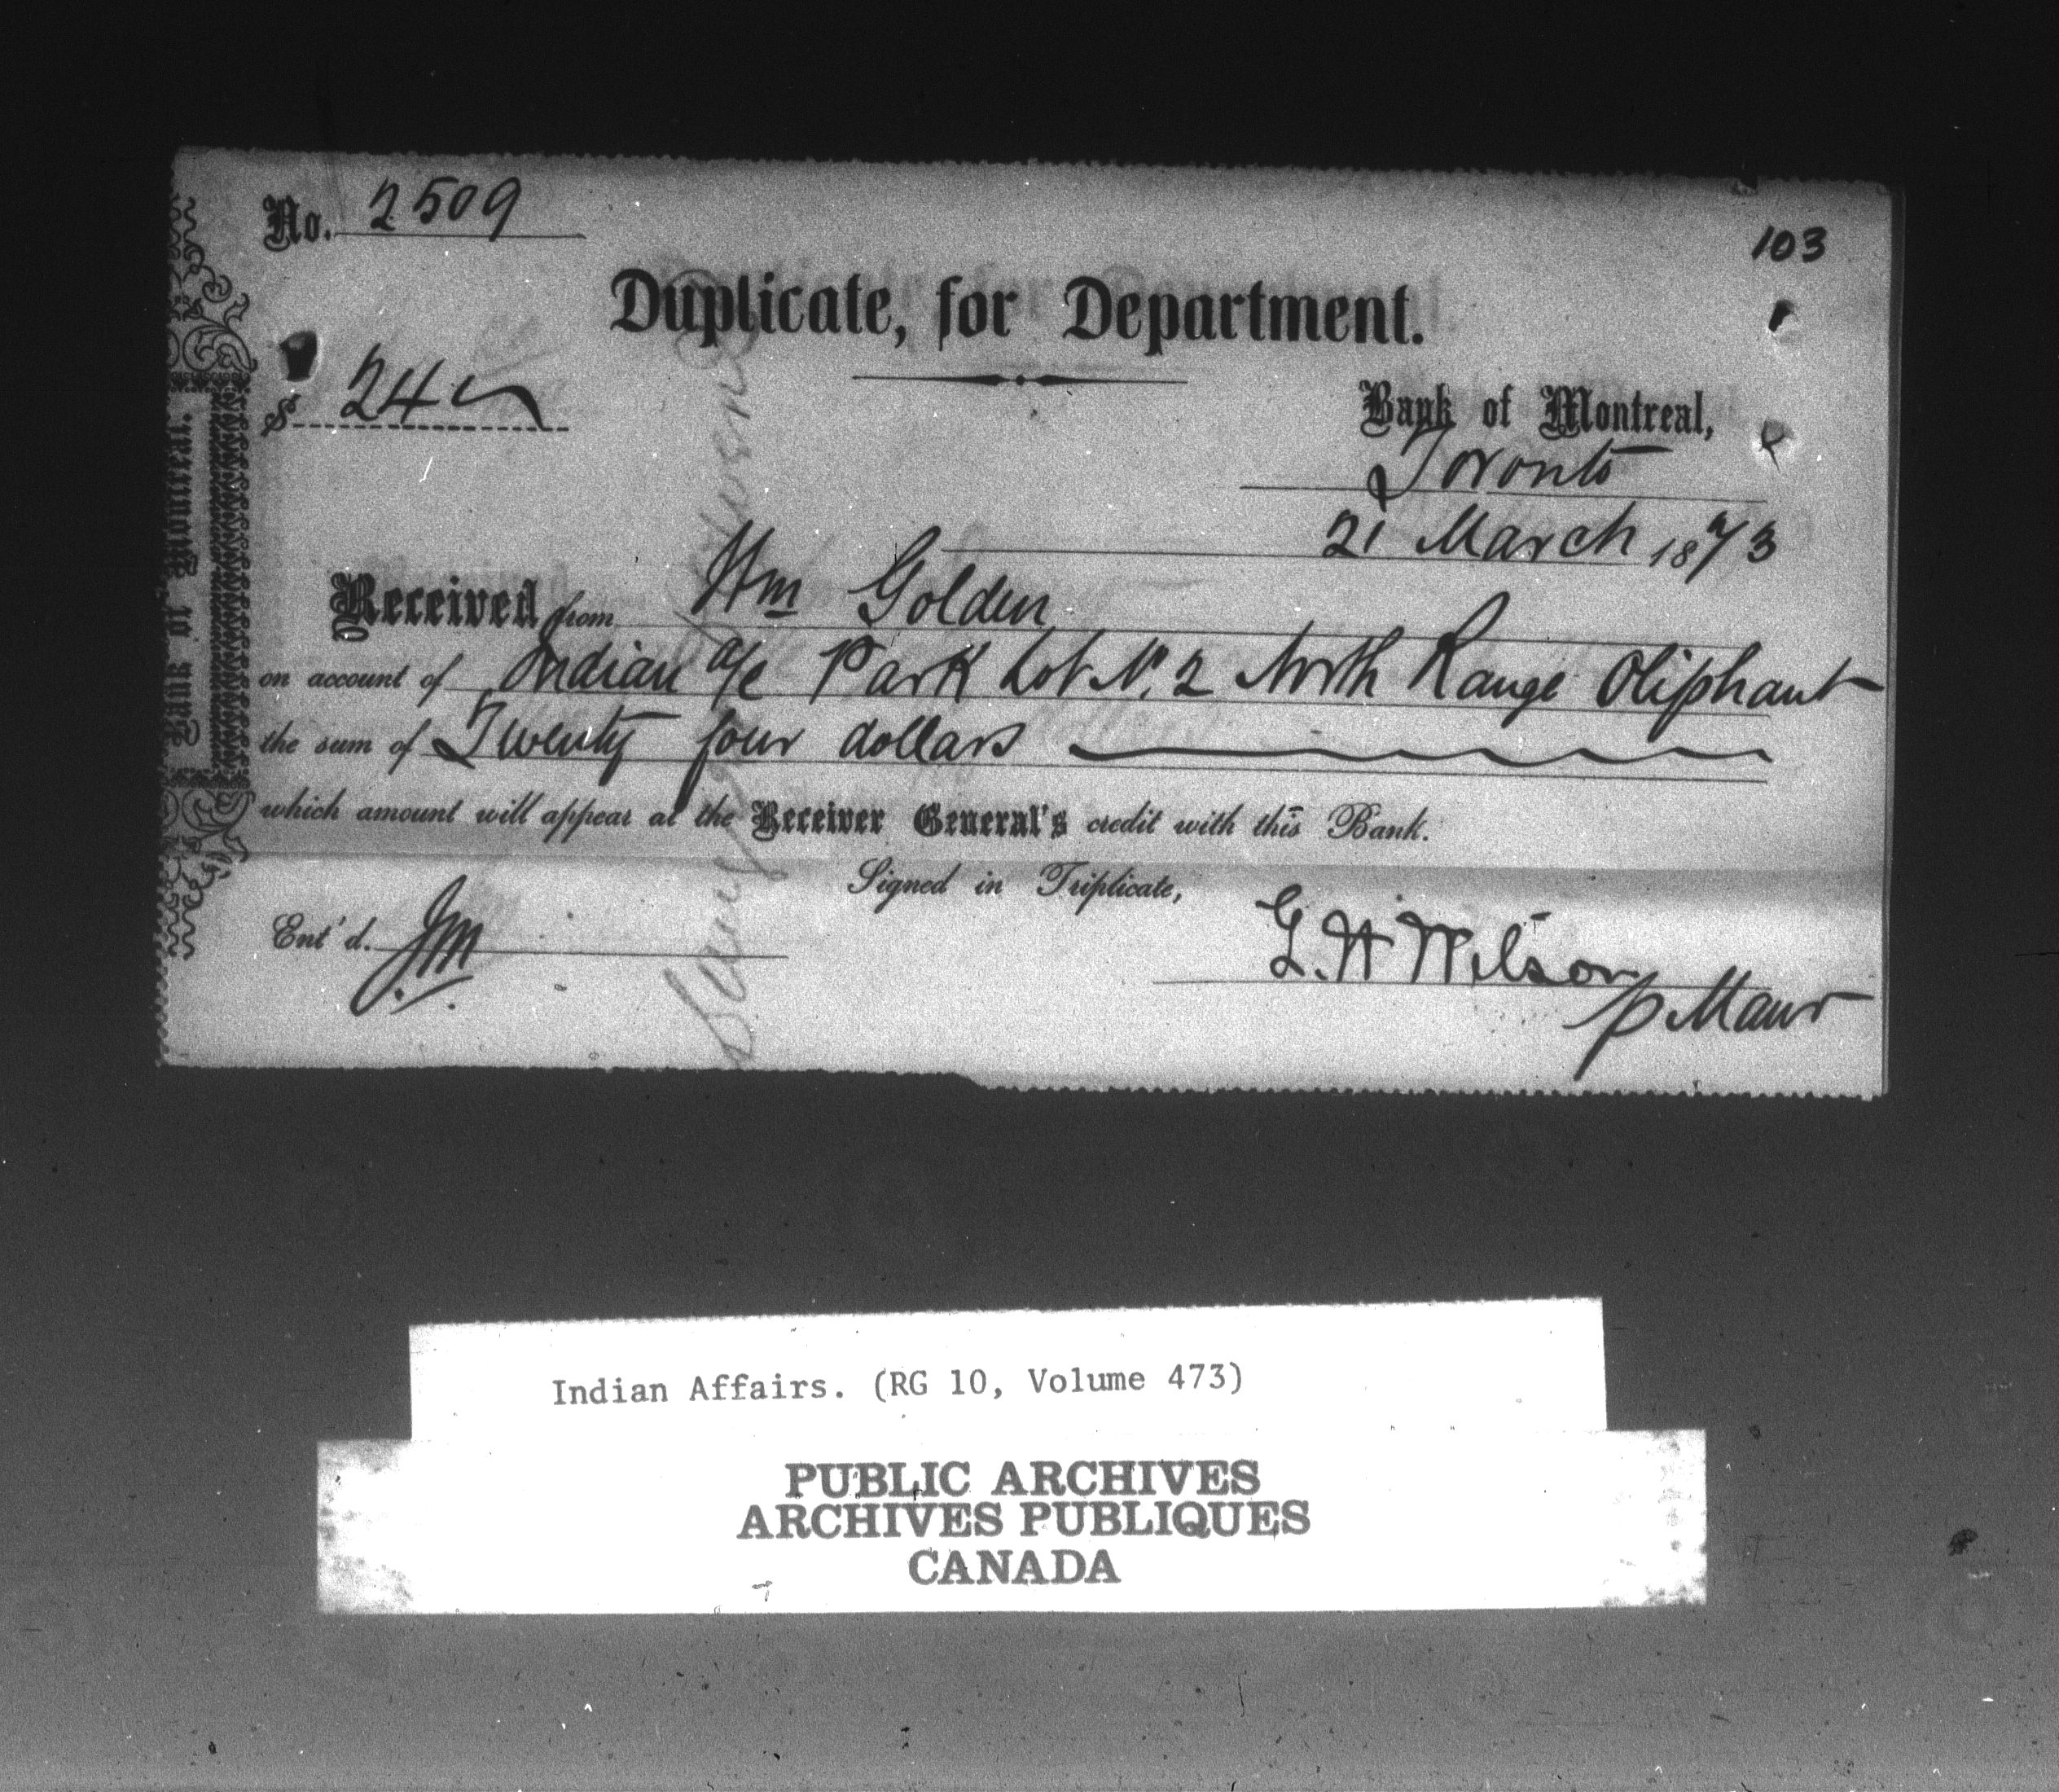 No. 2509
103
Duplicate, for Department.
$ 24
Bank of Montreal,
Toronto
21 March 1873
Received from Wm Golden
on account of Indian a/c Park Lot No. 2 North Range Oliphant
the sum of Twenty four dollars
which amount will appear at the Receiver General's credit with this Bank.
Signed in Triplicate,
Ent'd. JM
G. H Wilson
p Manr
Bank of Montreal.
Indian Affairs. (RG 10, Volume 473)
PUBLIC ARCHIVES
ARCHIVES PUBLIQUES
CANADA